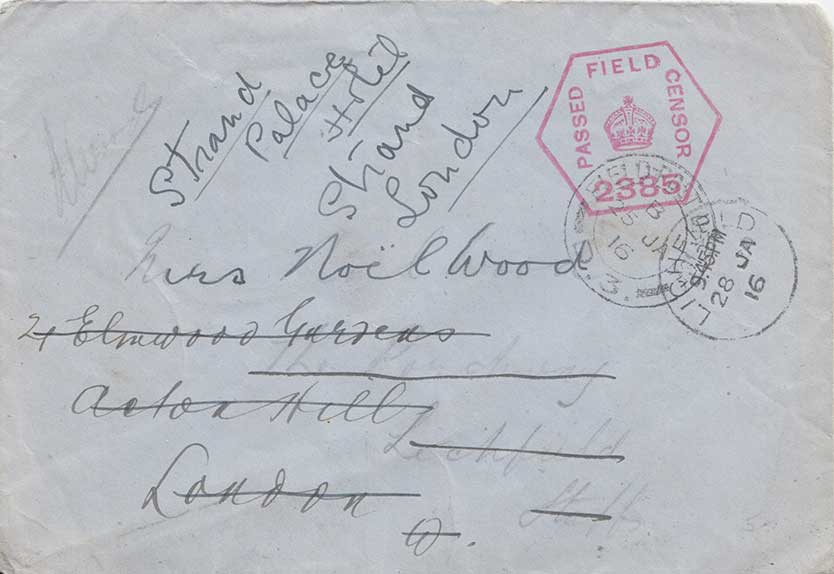 Strand
Palace
Hotel
Strand
London
PASSED FIELD CENSOR
2385
FIELD
B
25 JA
16
LICHFIELD
9.45PM
28 JA
16
Mrs Noël Wood
21 Elmwood Gardens
The
Acton Hill
Lichfield
London
Staffs
W.